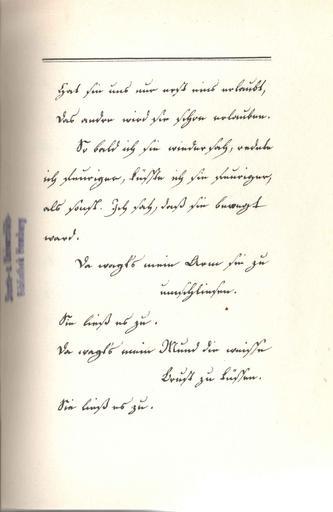 Hat sie uns nur erst eins erlaubt,
das andre wird sie schon erlauben.
So bald ich sie wiedersah, redete
ich feuriger, küßte ich sie feuriger,
als sonst. Ich sah, daß sie bewegt
ward.
Da wagt's mein Arm sie zu
umschließen.
Sie ließ es zu.
Da wagt's mein Mund die weisse
Brust zu küssen.
Sie ließ es zu.
Staats- u. Universitäts-
Bibliothek Hamburg